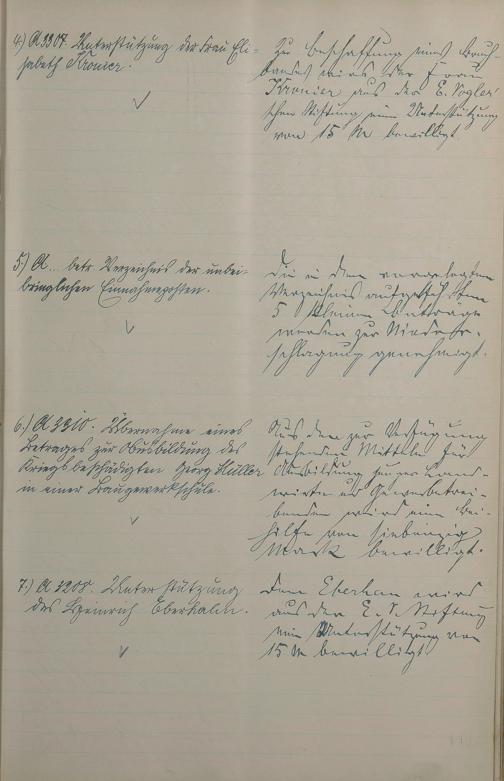 4.) A 3307. Unterstützung der Frau Eli-
sabeth Kronier.
Zu Beschaffung eines Bruch-
bandes wird der Frau
Kronier aus der E. Vogler'
schen Stiftung eine Unterstützung
von 15 M bewilligt.
5.) A... betr. Verzeichnis der unbei-
bringlichen Einnahmeposten.
Die in dem vorgelegten
Verzeichnis aufgeführten
5 kleinen Beträge
werden zur Nieder-
schlagung genehmigt.
6.) A 3310. Übernahme eines
Betrages zur Ausbildung des
Kriegsbeschädigten Georg Müller
in einer Baugewerkschule.
Aus den zur Verfügung
stehenden Mitteln für
Ausbildung junger Hand-
wirte und Gewerbetrei-
benden wird eine Bei-
hilfe von siebenzig
Mark bewilligt.
7.) A 3208. Unterstützung
des Heinrich Eberhahn.
Dem Eberhan wird
aus der E. V. Stiftung
eine Unterstützung von
15 M bewilligt.